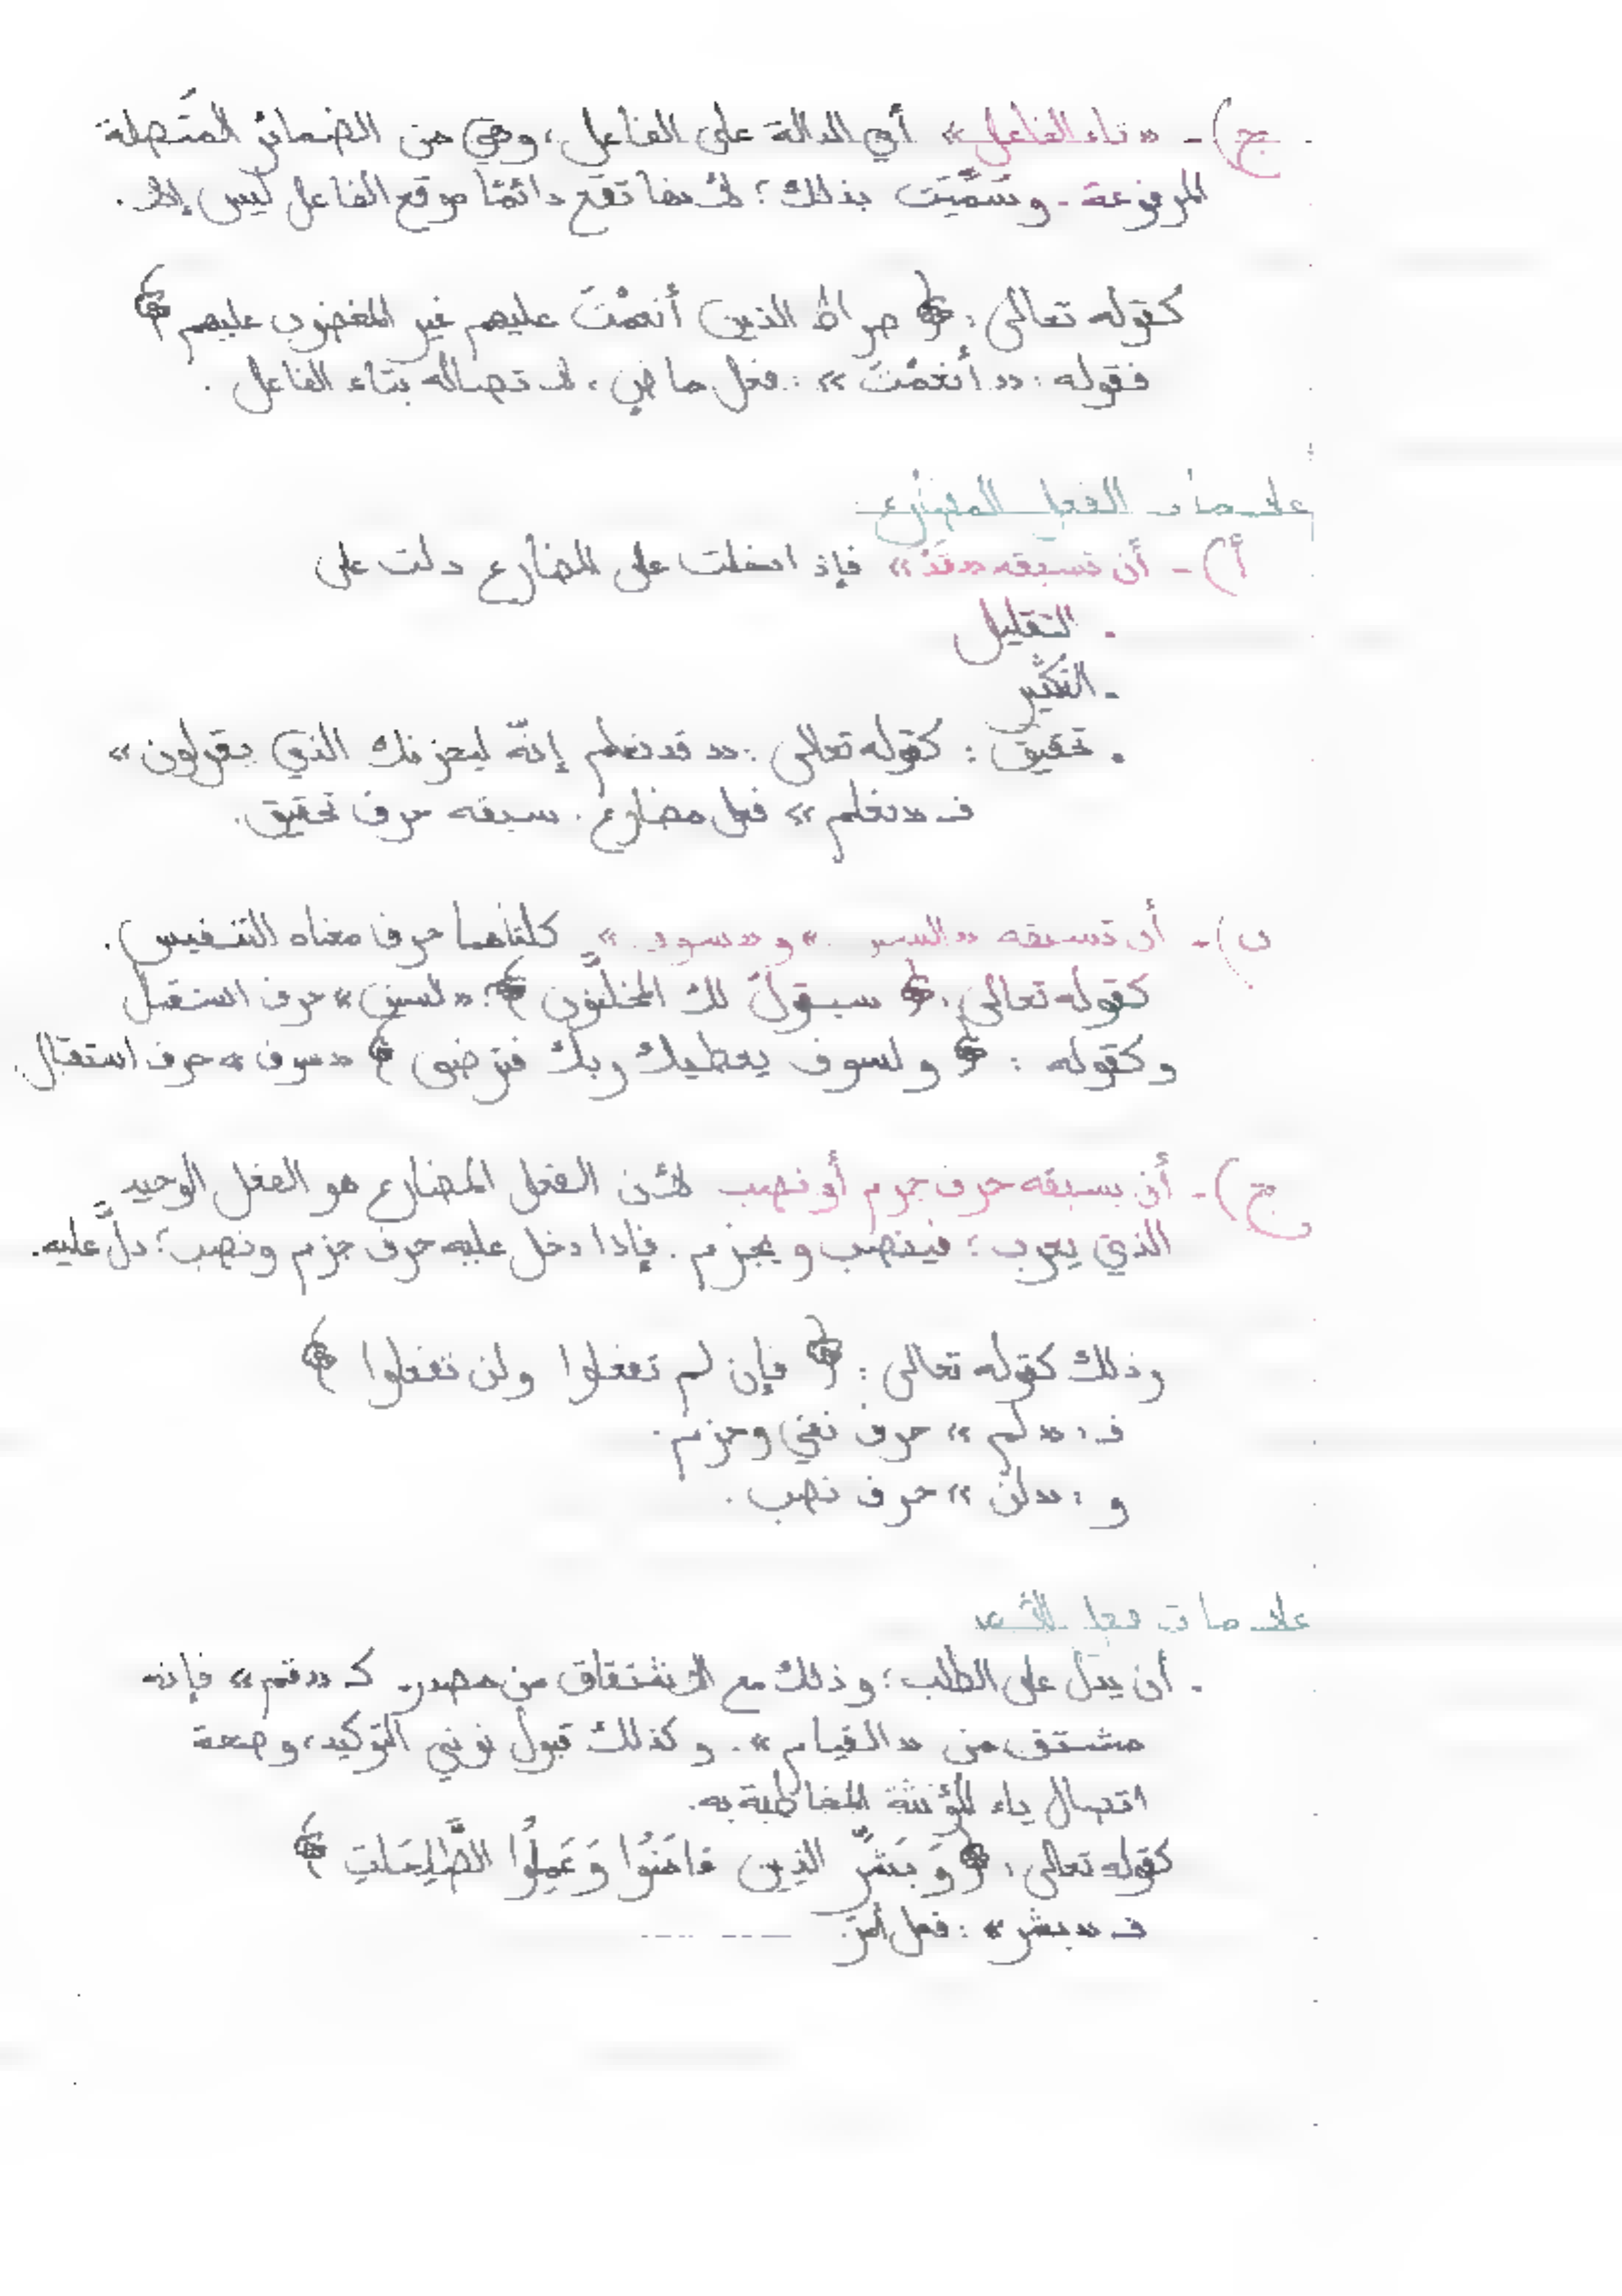 ج) - «تاء الفاعل» أي الدالة على الفاعل، وهي من الضمائر المتَّصلة
المرفوعة - وسُمِّيَت بذلك؛ لأنها تقع دائمًا موقع الفاعل ليس إلا.
كقوله تعالى: ﴿ صراط الذين أنعمْتَ عليهم غير المغضوب عليهم ﴾
فقوله: «أنعمْتَ»: فعل ماض، لاتصاله بتاء الفاعل.
علامات الفعل المضارع
أ) - أن تسبقه «قَدْ» فإذا دخلت على المضارع دلت على
. التقليل
- التكثير
. تحقيق: كقوله تعالى: «قد نعلم إنّه ليحزنك الذي يقولون»
فـ «نعلم» فعل مضارع. سبقه حرف تحقيق.
ب) - أن تسبقه «السين» و «سوف» كلتاهما حرف معناه التنفيس.
كقوله تعالى: ﴿ سيقول لك المخلَّفون ﴾: «لسين» حرف استقبل
وكقوله: ﴿ ولسوف يعطيك ربك فترضى ﴾ «سوف» حرف استقبال.
ج) - أن يسبقه حرف جزم أو نصب لأن الفعل المضارع هو الفعل الوحيد
الذي يعرب؛ فينصب ويجزم. فإذا دخل عليه حرف جزم ونصب؛ دلَّ عليه.
وذلك كقوله تعالى: ﴿ فإن لم تفعلوا ولن تفعلوا ﴾
فـ: «لم» حرف نفي وجزم.
و: «لن» حرف نصب.
علامات فعل الأمر
. أن يدل على الطلب؛ وذلك مع الاشتقاق من مصدر. كـ «قم» فإنه
مشتق من «القيام». وكذلك قبول نوني التوكيد، وصحة
اتصال ياء المؤنثة المخاطبة به.
كقوله تعالى: ﴿ وَبَشِّرِ الذِين ءَامَنُوا وَعَمِلُوا الصَّالِحَاتِ ﴾
فـ «بشر»: فعل أمر.